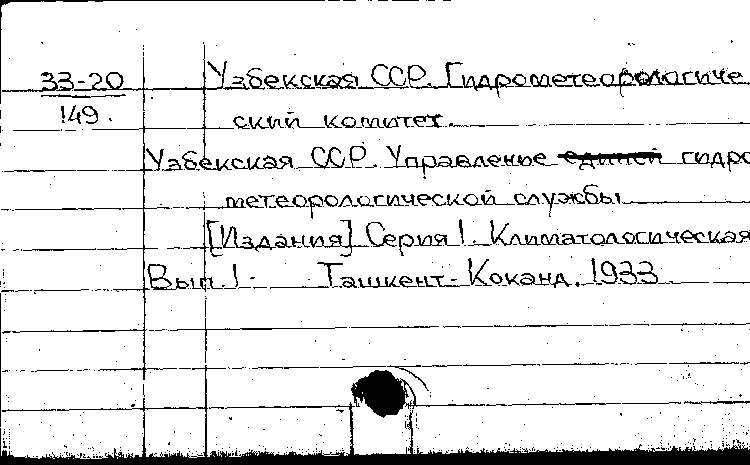 33-20 Узбекская ССР. Гидрометеорологиче
149. ский комитет.
Узбекская ССР. Управление единой гидро
метеорологической службы
[Издания] Серия I. Климатологическая
Вып. I- Ташкент-Коканд. 1933.